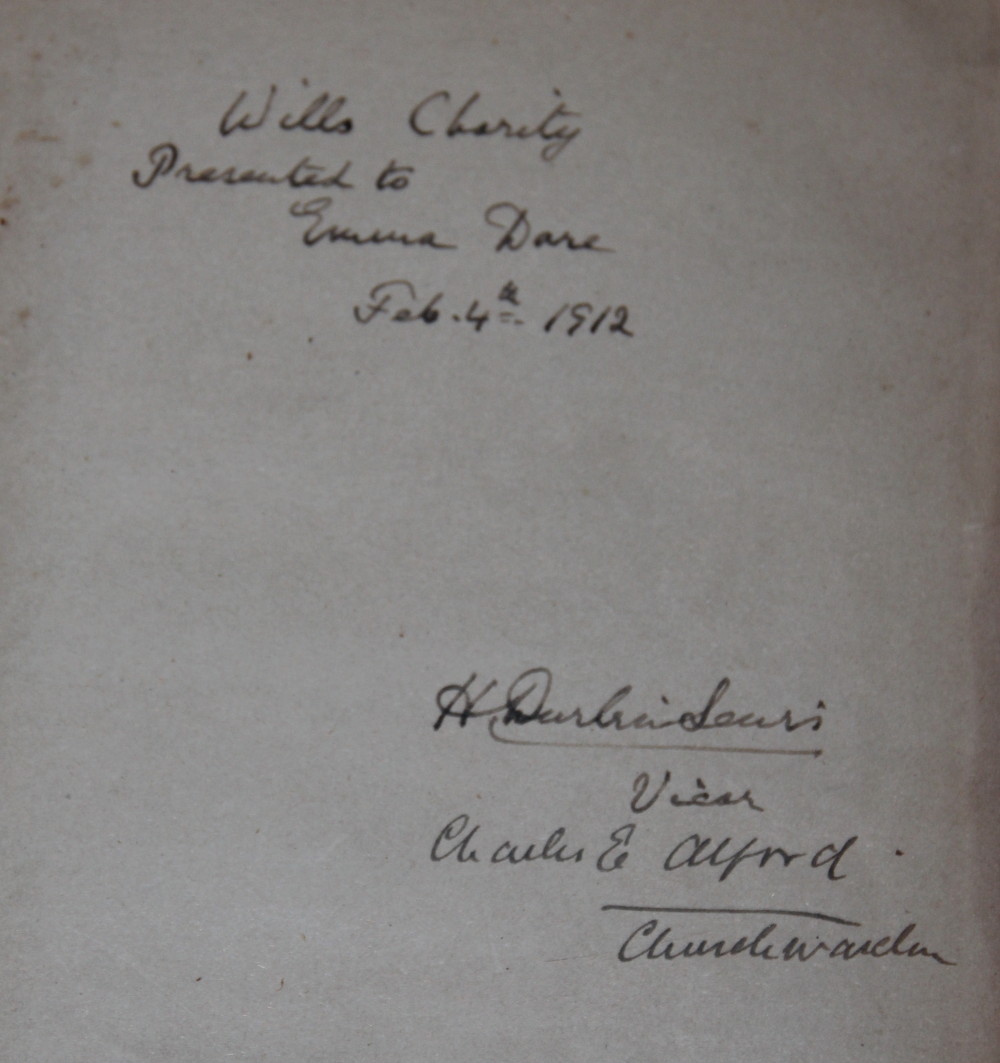 Wills Charity
Presented to
Emma Dare
Feb. 4th 1912
H. Durbin Lewis
Vicar
Charles E Alford
Churchwarden